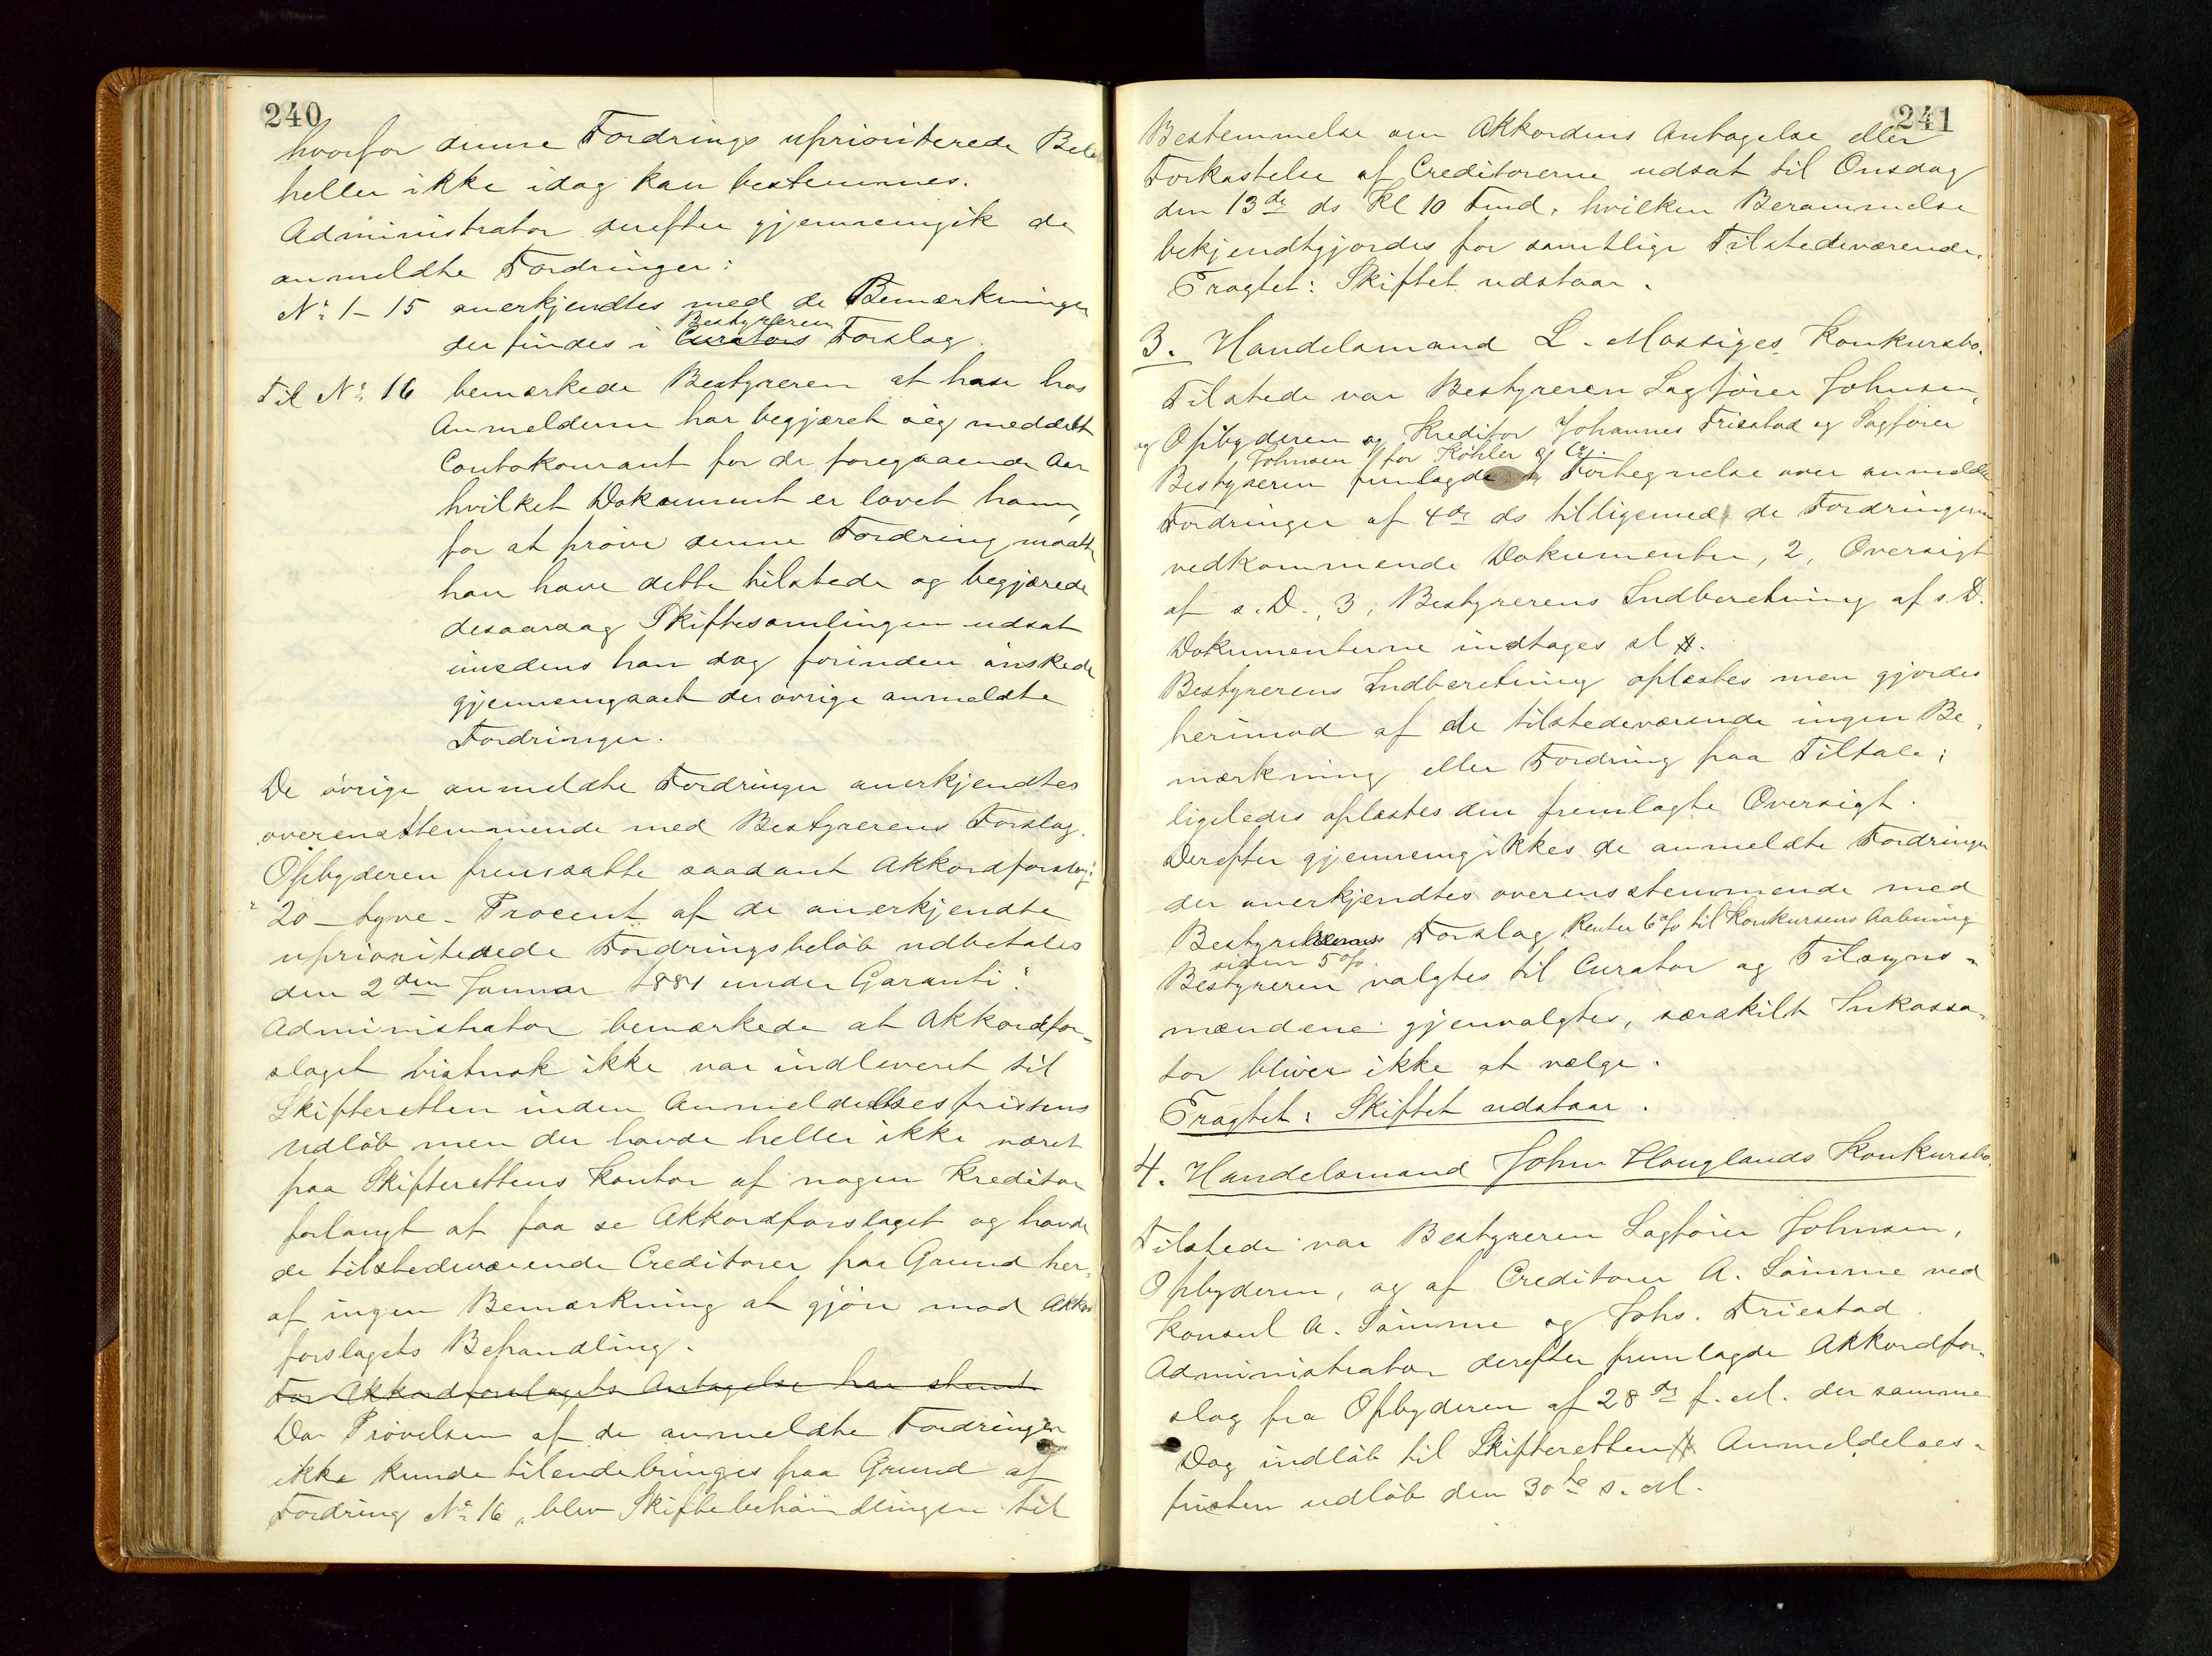 240
hvorfor denne Fordrings uprioriterede Bel
heller ikke idag kan bestemmes.
Administrator derefter gjennemgik de
anmeldte Fordringer:
No 1-15 anerkjendtes med de Bemærkninger
Bestyreren
der findes i Curators Forslag.
Til No 16 bemærkede Bestyreren at han hos
Anmelderne har begjæret sig meddelt
Contokourant for de foregaaende Aar
hvilket Dokument er lovet ham,
for at prøve denne Fordring maatte
han have dette tilstede og begjærede
desaarsag Skiftesamlingen udsat
imedens han dog forinden ønskede
gjennemgaaet de øvrige anmeldte
Fordringer.
De øvrige anmeldte Fordringer anerkjendtes
overensstemmende med Bestyrerens Forslag.
Opbyderen fremsatte saadant Akkordforslag:
"20 - tyve - Procent af de anerkjendte
uprioriterede Fordringsbeløb udbetales
den 2den Januar 1881 under Garanti".
Administrator bemærkede at Akkordfor-
slaget vistnok ikke var indleveret til
Skifteretten inden Anmeldelsesfristens
Udløb men der havde heller ikke været
paa Skifterettens Kontor af nogen Kreditor
forlangt at faa se Akkordforslaget og havde
de tilstedeværende Creditorer paa Grund her-
af ingen Bemærkning at gjøre mod Akkord
forslagets Behandling.
For Akkordforslagets Antagelse har stemt
Da Prøvelsen af de anmeldte Fordringer
ikke kunde tilendebringes paa Grund af
Fordring No 16, blev Skiftebehandlingen til
241
Bestemmelse om Akkordens Antagelse eller
Forkastelse af Creditorerne udsat til Onsdag
den 13de ds Kl 10 Fmd. hvilken Berammelse
bekjendtgjordes for samtlige Tilstedeværende.
Eragtet: Skiftet udstaar.
3. Handelsmand L. Mossiges Konkursbo.
Tilstede var Bestyreren Sagfører Johnsen,
og Opbyderen og Kreditor Johannes Friestad og Sagfører
Johnsen for Köhler & Co.
Bestyreren fremlagde Fortegnelse over anmeldte
Fordringer af 4de ds tilligemed de Fordringerne
vedkommende Dokumenter, 2, Oversigt
af s. D., 3, Bestyrerens Indberetning af s. D.
Dokumenterne indtages sl
Bestyrerens Indberetning oplæstes men gjordes
herimod af de tilstedeværende ingen Be-
mærkning eller Fordring paa Tiltale;
ligeledes oplæstes den fremlagte Oversigt.
Derefter gjennemgikkes de anmeldte Fordringer
der anerkjendtes overensstemmende med
Bestyrerens Forslag Renter 6 % til Konkursens Aabning
siden 5 %.
Bestyreren valgtes til Curator og Tilsyns-
mændene gjenvalgtes, særskilt Inkassa-
tor bliver ikke at vælge.
Eragtet: Skiftet udstaar.
4. Handelsmand John Houglands Konkursbo.
Tilstede var Bestyreren Sagfører Johnsen,
Opbyderen, og af Creditorer A. Sømme ved
Konsul A. Sømme og Johs. Friestad.
Administrator derefter fremlagde Akkordfor-
slag fra Opbyderen af 28de f. M. der samme
Dag indløb til Skifteretten Anmeldelses-
fristen udløb den 30te s. M.